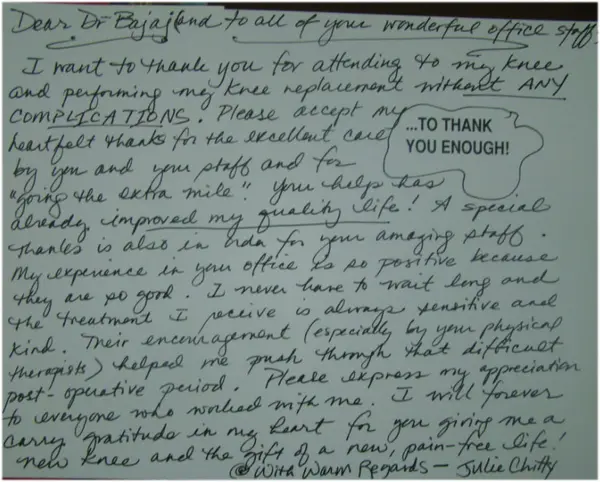 Dear Dr Bajaj (and to all of your wonderful office staff,
I want to thank you for attending to my knee
and performing my knee replacement without ANY
COMPLICATIONS. Please accept my
heartfelt thanks for the excellent care
by you and your staff and for
"going the extra mile". Your help has
already improved my quality life! A special
thanks is also in order for your amazing staff.
My experience in your office is so positive because
they are so good. I never have to wait long and
the treatment I receive is always sensitive and
kind. Their encouragement (especially by your physical
therapists) helped me push through that difficult
post-operative period. Please express my appreciation
to everyone who worked with me. I will forever
carry gratitude in my heart for you giving me a
new knee and the gift of a new, pain-free life!
With Warm Regards - Julie Chitty
...TO THANK
YOU ENOUGH!